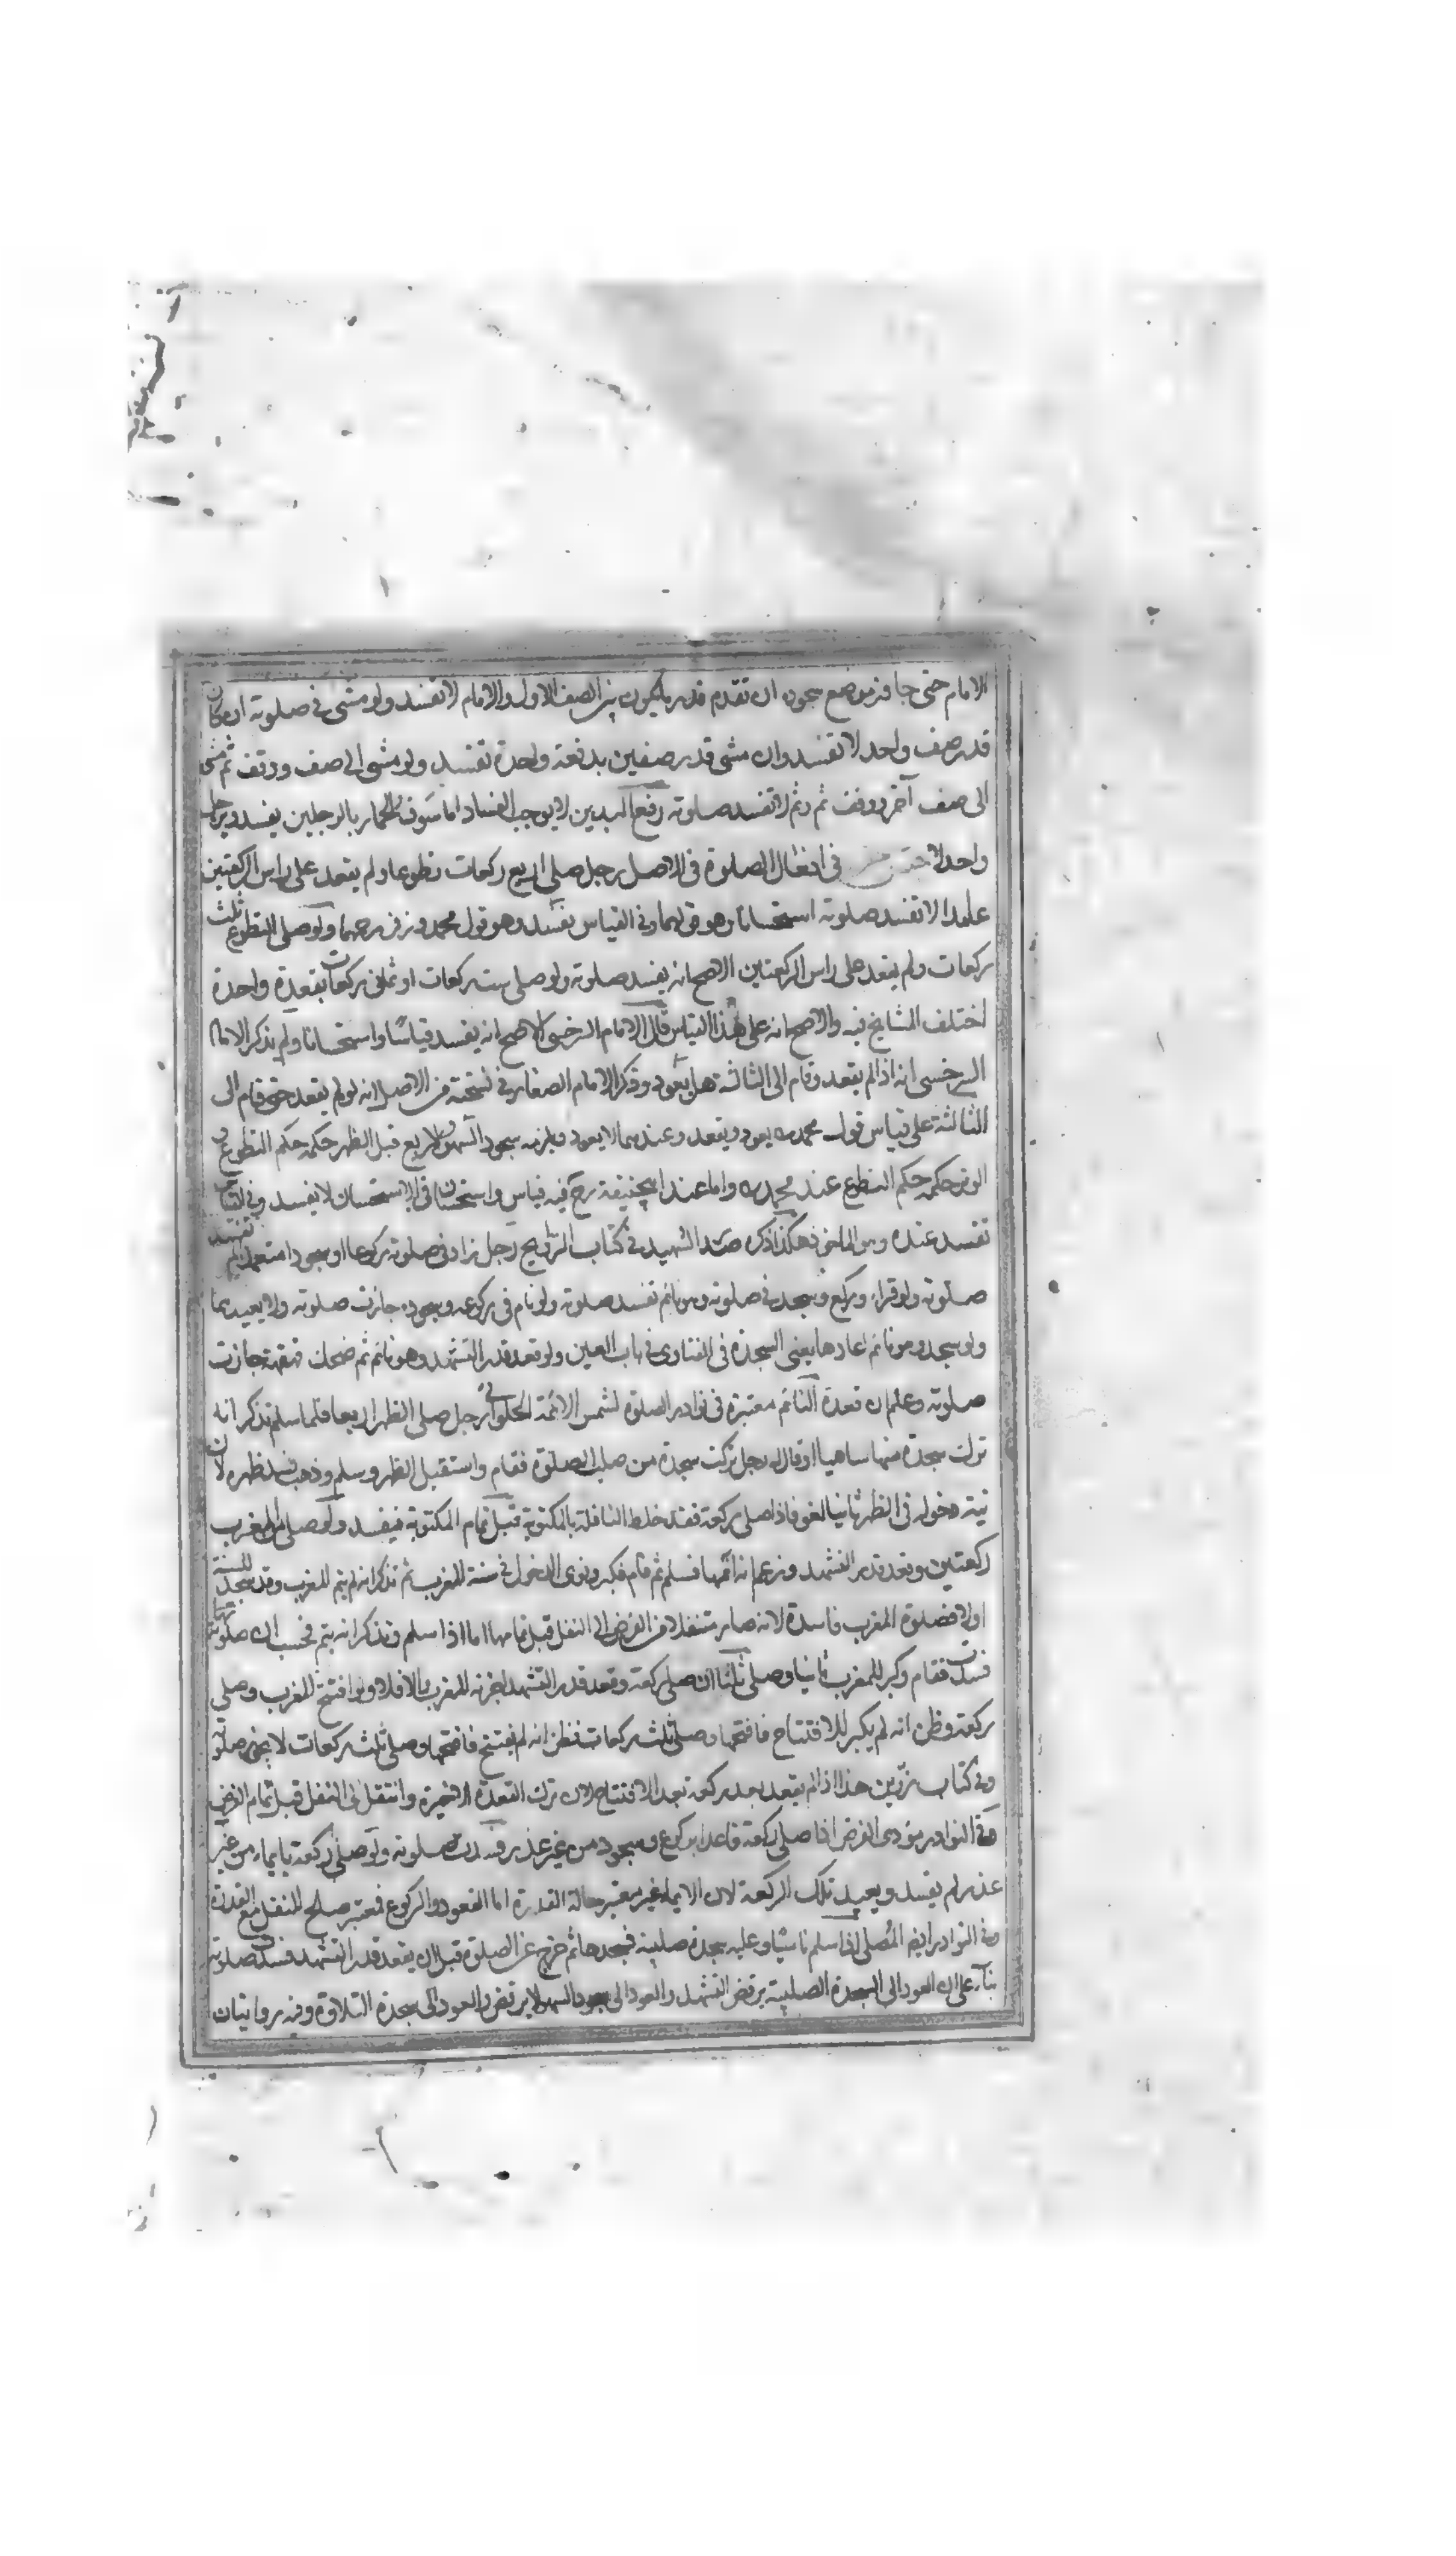 الامام حتى جاوز موضع سجوده ان تقدم قدر ما يكون بين الصف الاول والامام لا تفسد ولو مشى في صلوته ان كان
قدر صف واحد لا تفسد وان مشى قدر صفين بدفعة واحدة تفسد ولو مشى الى صف ووقف ثم مشى
الى صف آخر ووقف ثم وثم لا تفسد صلوته رفع اليدين لا يوجب الفساد اما سوق الحمار بالرجلين يفسد وبرجل
واحد لا في افعال الصلوة في الاصل رجل صلى اربع ركعات تطوعا ولم يقعد على راس الركعتين
عامدا لا تفسد صلوته استحسانا وهو قولهما وفي القياس تفسد وهو قول محمد وزفر رحهما ولو صلى التطوع ثلث
ركعات ولم يقعد على راس الركعتين الاصح انه يفسد صلوته ولو صلى ست ركعات او ثماني ركعات بقعدة واحدة
اختلف المشايخ فيه والاصح انه على هذا القياس قال الامام السرخسي الاصح انه يفسد قياسا واستحسانا ولم يذكر الامام
السرخسي انه اذا لم يقعد وقام الى الثالثة هل يعود وذكر الامام الصفار في نسخته من الاصل انه لو لم يقعد حتى قام الى
الثالثة على قياس قول محمد ره يعود ويقعد وعندهما لا يعود ويلزمه سجود السهو والاربع قبل الظهر حكمه حكم التطوع و
الوتر حكمه حكم التطوع عند محمد ره واما عند ابيحنيفة رح فيه قياس واستحسان في الاستحسان لا يفسد وفي القياس
تفسد عنده وهو الماخوذ هكذا ذكره صدر الشهيد في كتاب التراويح رجل زاد في صلوته ركوعا او سجودا متعمدا لم تفسد
صلوته ولو قراء وركع وسجد في صلوته وهو نائم تفسد صلوته ولو نام في ركوعه وسجوده جازت صلوته ولا يعيدهما
ولو سجد وهو نائم اعادها يعني السجدة في الفتاوى في باب العين ولو قعد قدر التشهد وهو نائم ثم ضحك قهقهة جازت
صلوته وعلم ان قعدة النائم معتبرة في نوادر الصلوة لشمس الائمة الحلواني رجل صلى الظهر اربعا فلما سلم تذكر انه
ترك سجدة منها ساهيا او قال له رجل تركت سجدة من صلب الصلوة فقام واستقبل الظهر وسلم وذهب فسد ظهره لان
نية دخوله في الظهر ثانيا لغو فاذا صلى ركعة فقد خلط النافلة بالمكتوبة قبل تمام المكتوبة فيفسد ولو صلى المغرب
ركعتين وقعد قدر التشهد وزعم انه اتمها فسلم ثم قام فكبر ونوى الدخول في سنة المغرب ثم تذكر انه لم يتم المغرب وقد سجد للسنة
اولا فصلوة المغرب فاسدة لانه صار متنفلا من الفرض الى النفل قبل تمامها اما اذا سلم وتذكر انه يتم فحسب ان صلوته
فسدت فقام وكبر للمغرب ثانيا وصلى ثلثا ان صلى ركعة وقعد قدر التشهد اجزته المغرب والا فلا ولو افتتح المغرب وصلى
ركعة وظن انه لم يكبر للافتتاح فافتتحها وصلى ثلث ركعات فظن انه لم يفتتح فافتتحها وصلى ثلث ركعات لا يجوز صلوته
وفي كتاب رزين هذا اذا لم يقعد بعد ركعة بعد الافتتاح لان ترك القعدة الاخيرة وانتقل الى النفل قبل تمام الفرض
وفي النوادر مؤدى الفرض اذا صلى ركعة قاعدا بركوع وسجود من غير عذر فسدت صلوته ولو صلى ركعة بايماء من غير
عذر لم يفسد ويعيد تلك الركعة لان الايماء غير معتبر حالة القدرة اما القعود والركوع فمعتبر صلح للنفل مع القدرة
وفي النوادر ايضا المصلي اذا سلم ناسيا وعليه سجدة صلبية فسجدها ثم خرج عن الصلوة قبل ان يقعد قدر التشهد فسدت صلوته
بناء على ان العود الى السجدة الصلبية يرفض التشهد والعود الى سجود السهو لا يرفض والعود الى سجدة التلاوة وفيه روايتان